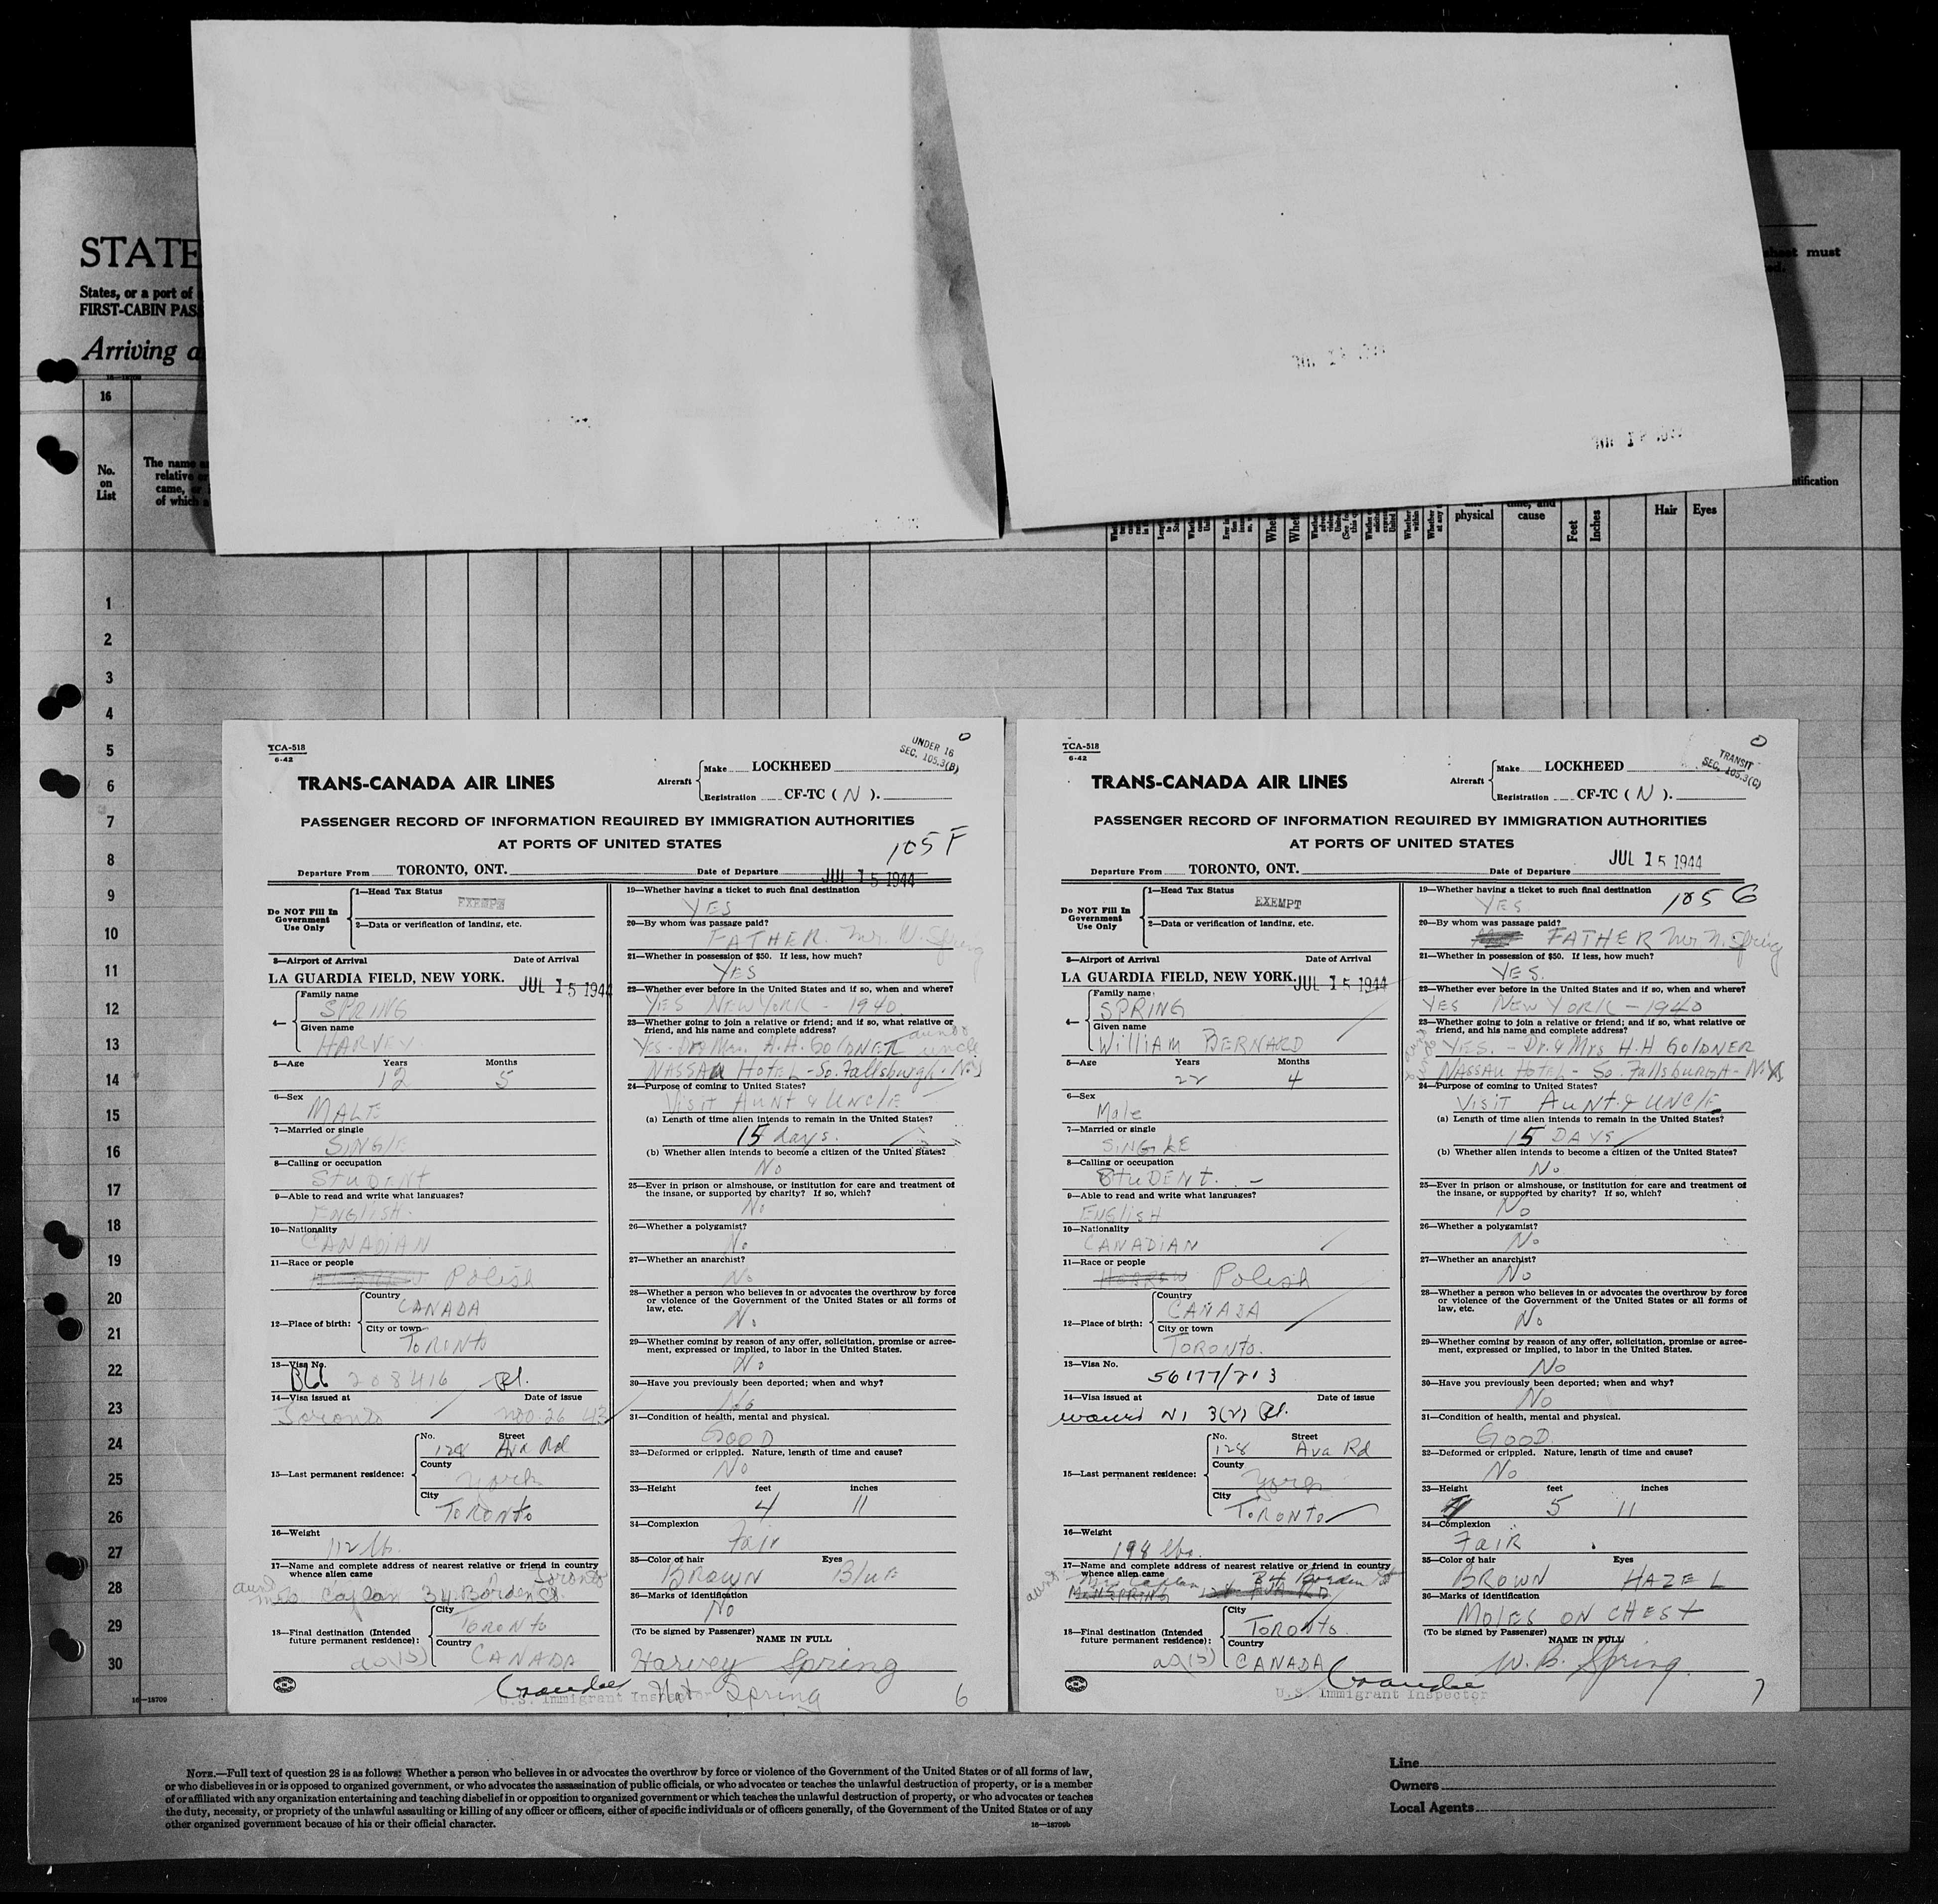 STATE
States, or a port of
FIRST-CABIN PAS
Arriving a
sheet must
ed.
16—18709
16
No.
on
List
The name
relative or
came, or
of which a
physical
time, and
cause
Feet
Inches
Hair
Eyes
ntification
1
2
3
4
5
6
7
8
9
10
11
12
13
14
15
16
17
18
19
20
21
22
23
24
25
26
27
28
29
30
16—18709
TCA-518
6-42
UNDER 16
SEC. 105.3(B)
TRANS-CANADA AIR LINES
Aircraft
Make LOCKHEED
Registration CF-TC ( N ).
PASSENGER RECORD OF INFORMATION REQUIRED BY IMMIGRATION AUTHORITIES
AT PORTS OF UNITED STATES
105 F
Departure From TORONTO, ONT. Date of Departure JUL 15 1944
Do NOT Fill In
Government
Use Only
1—Head Tax Status
EXEMPT
2—Data or verification of landing, etc.
3—Airport of Arrival Date of Arrival
LA GUARDIA FIELD, NEW YORK. JUL 15 1944
4—
Family name
SPRING
Given name
HARVEY
5—Age Years Months
12 5
6—Sex
MALE
7—Married or single
SINGLE
8—Calling or occupation
STUDENT
9—Able to read and write what languages?
ENGLISH.
10—Nationality
CANADIAN
11—Race or people
Polish
12—Place of birth:
Country
CANADA
City or town
TORONTO
13—Visa No.
208416
14—Visa issued at Date of issue
Toronto Nov. 26 43
15—Last permanent residence:
No. Street
128 Ava Rd
County
York
City
TORONTO
16—Weight
112 lb.
17—Name and complete address of nearest relative or friend in country
whence alien came
Toronto
aunt
Caplan 34 Borden St.
18—Final destination (Intended
future permanent residence):
City
TORONTO
Country
CANADA
as (15)
U.S. Immigrant Inspector
19—Whether having a ticket to such final destination
YES
20—By whom was passage paid?
FATHER. Mr. N. Spring
21—Whether in possession of $50. If less, how much?
YES
22—Whether ever before in the United States and if so, when and where?
YES NEW YORK - 1940
23—Whether going to join a relative or friend; and if so, what relative or
friend, and his name and complete address?
aunt &
uncle
YES - Dr & Mrs. H.H. GOLDNER
NASSAU HOTEL - So. Fallsburgh. N.Y
24—Purpose of coming to United States?
VISIT AUNT & UNCLE
(a) Length of time alien intends to remain in the United States?
15 days.
(b) Whether alien intends to become a citizen of the United States?
No
25—Ever in prison or almshouse, or institution for care and treatment of
the insane, or supported by charity? If so, which?
No
26—Whether a polygamist?
No
27—Whether an anarchist?
No
28—Whether a person who believes in or advocates the overthrow by force
or violence of the Government of the United States or all forms of
law, etc.
No
29—Whether coming by reason of any offer, solicitation, promise or agree-
ment, expressed or implied, to labor in the United States.
No
30—Have you previously been deported; when and why?
No
31—Condition of health, mental and physical.
GOOD
32—Deformed or crippled. Nature, length of time and cause?
No
33—Height feet inches
4 11
34—Complexion
Fair
35—Color of hair Eyes
BROWN BLUE
36—Marks of identification
No
(To be signed by Passenger)
NAME IN FULL
Harvey Spring
Spring
6
TCA-518
6-42
TRANSIT
SEC. 105.3(C)
TRANS-CANADA AIR LINES
Aircraft
Make LOCKHEED
Registration CF-TC ( N ).
PASSENGER RECORD OF INFORMATION REQUIRED BY IMMIGRATION AUTHORITIES
AT PORTS OF UNITED STATES
Departure From TORONTO, ONT. Date of Departure JUL 15 1944
Do NOT Fill In
Government
Use Only
1—Head Tax Status
EXEMPT
2—Data or verification of landing, etc.
3—Airport of Arrival Date of Arrival
LA GUARDIA FIELD, NEW YORK. JUL 15 1944
4—
Family name
SPRING
Given name
William BERNARD
5—Age Years Months
22 4
6—Sex
Male
7—Married or single
SINGLE
8—Calling or occupation
STUDENT.
9—Able to read and write what languages?
ENGLISH
10—Nationality
CANADIAN
11—Race or people
HEBREW Polish
12—Place of birth:
Country
CANADA
City or town
TORONTO.
13—Visa No.
56177/213
14—Visa issued at Date of issue
3(2)
15—Last permanent residence:
No. Street
128 Ava Rd
County
York
City
TORONTO
16—Weight
198 lbs.
17—Name and complete address of nearest relative or friend in country
whence alien came
aunt
Caplan 34 Borden St
SPRING 128 AVA RD
18—Final destination (Intended
future permanent residence):
City
TORONTO.
Country
CANADA
as (15)
U.S. Immigrant Inspector
19—Whether having a ticket to such final destination
YES.
105 G
20—By whom was passage paid?
FATHER Mr N. Spring
21—Whether in possession of $50. If less, how much?
YES.
22—Whether ever before in the United States and if so, when and where?
YES NEW YORK - 1940
23—Whether going to join a relative or friend; and if so, what relative or
friend, and his name and complete address?
YES. - Dr. & Mrs H.H GOLDNER
NASSAU HOTEL - So. FALLSBURGH - N.Y.
24—Purpose of coming to United States?
VISIT AUNT & UNCLE.
(a) Length of time alien intends to remain in the United States?
15 DAYS
(b) Whether alien intends to become a citizen of the United States?
No.
25—Ever in prison or almshouse, or institution for care and treatment of
the insane, or supported by charity? If so, which?
No
26—Whether a polygamist?
No
27—Whether an anarchist?
No
28—Whether a person who believes in or advocates the overthrow by force
or violence of the Government of the United States or all forms of
law, etc.
No
29—Whether coming by reason of any offer, solicitation, promise or agree-
ment, expressed or implied, to labor in the United States.
No
30—Have you previously been deported; when and why?
No
31—Condition of health, mental and physical.
GOOD.
32—Deformed or crippled. Nature, length of time and cause?
No
33—Height feet inches
5 11
34—Complexion
FAIR
35—Color of hair Eyes
BROWN HAZEL
36—Marks of identification
MOLES ON CHEST
(To be signed by Passenger)
NAME IN FULL
W. B. Spring.
7
NOTE.—Full text of question 28 is as follows: Whether a person who believes in or advocates the overthrow by force or violence of the Government of the United States or of all forms of law,
or who disbelieves in or is opposed to organized government, or who advocates the assassination of public officials, or who advocates or teaches the unlawful destruction of property, or is a member
of or affiliated with any organization entertaining and teaching disbelief in or opposition to organized government or which teaches the unlawful destruction of property, or who advocates or teaches
the duty, necessity, or propriety of the unlawful assaulting or killing of any officer or officers, either of specific individuals or of officers generally, of the Government of the United States or of any
other organized government because of his or their official character.
16—18709b
Line
Owners
Local Agents